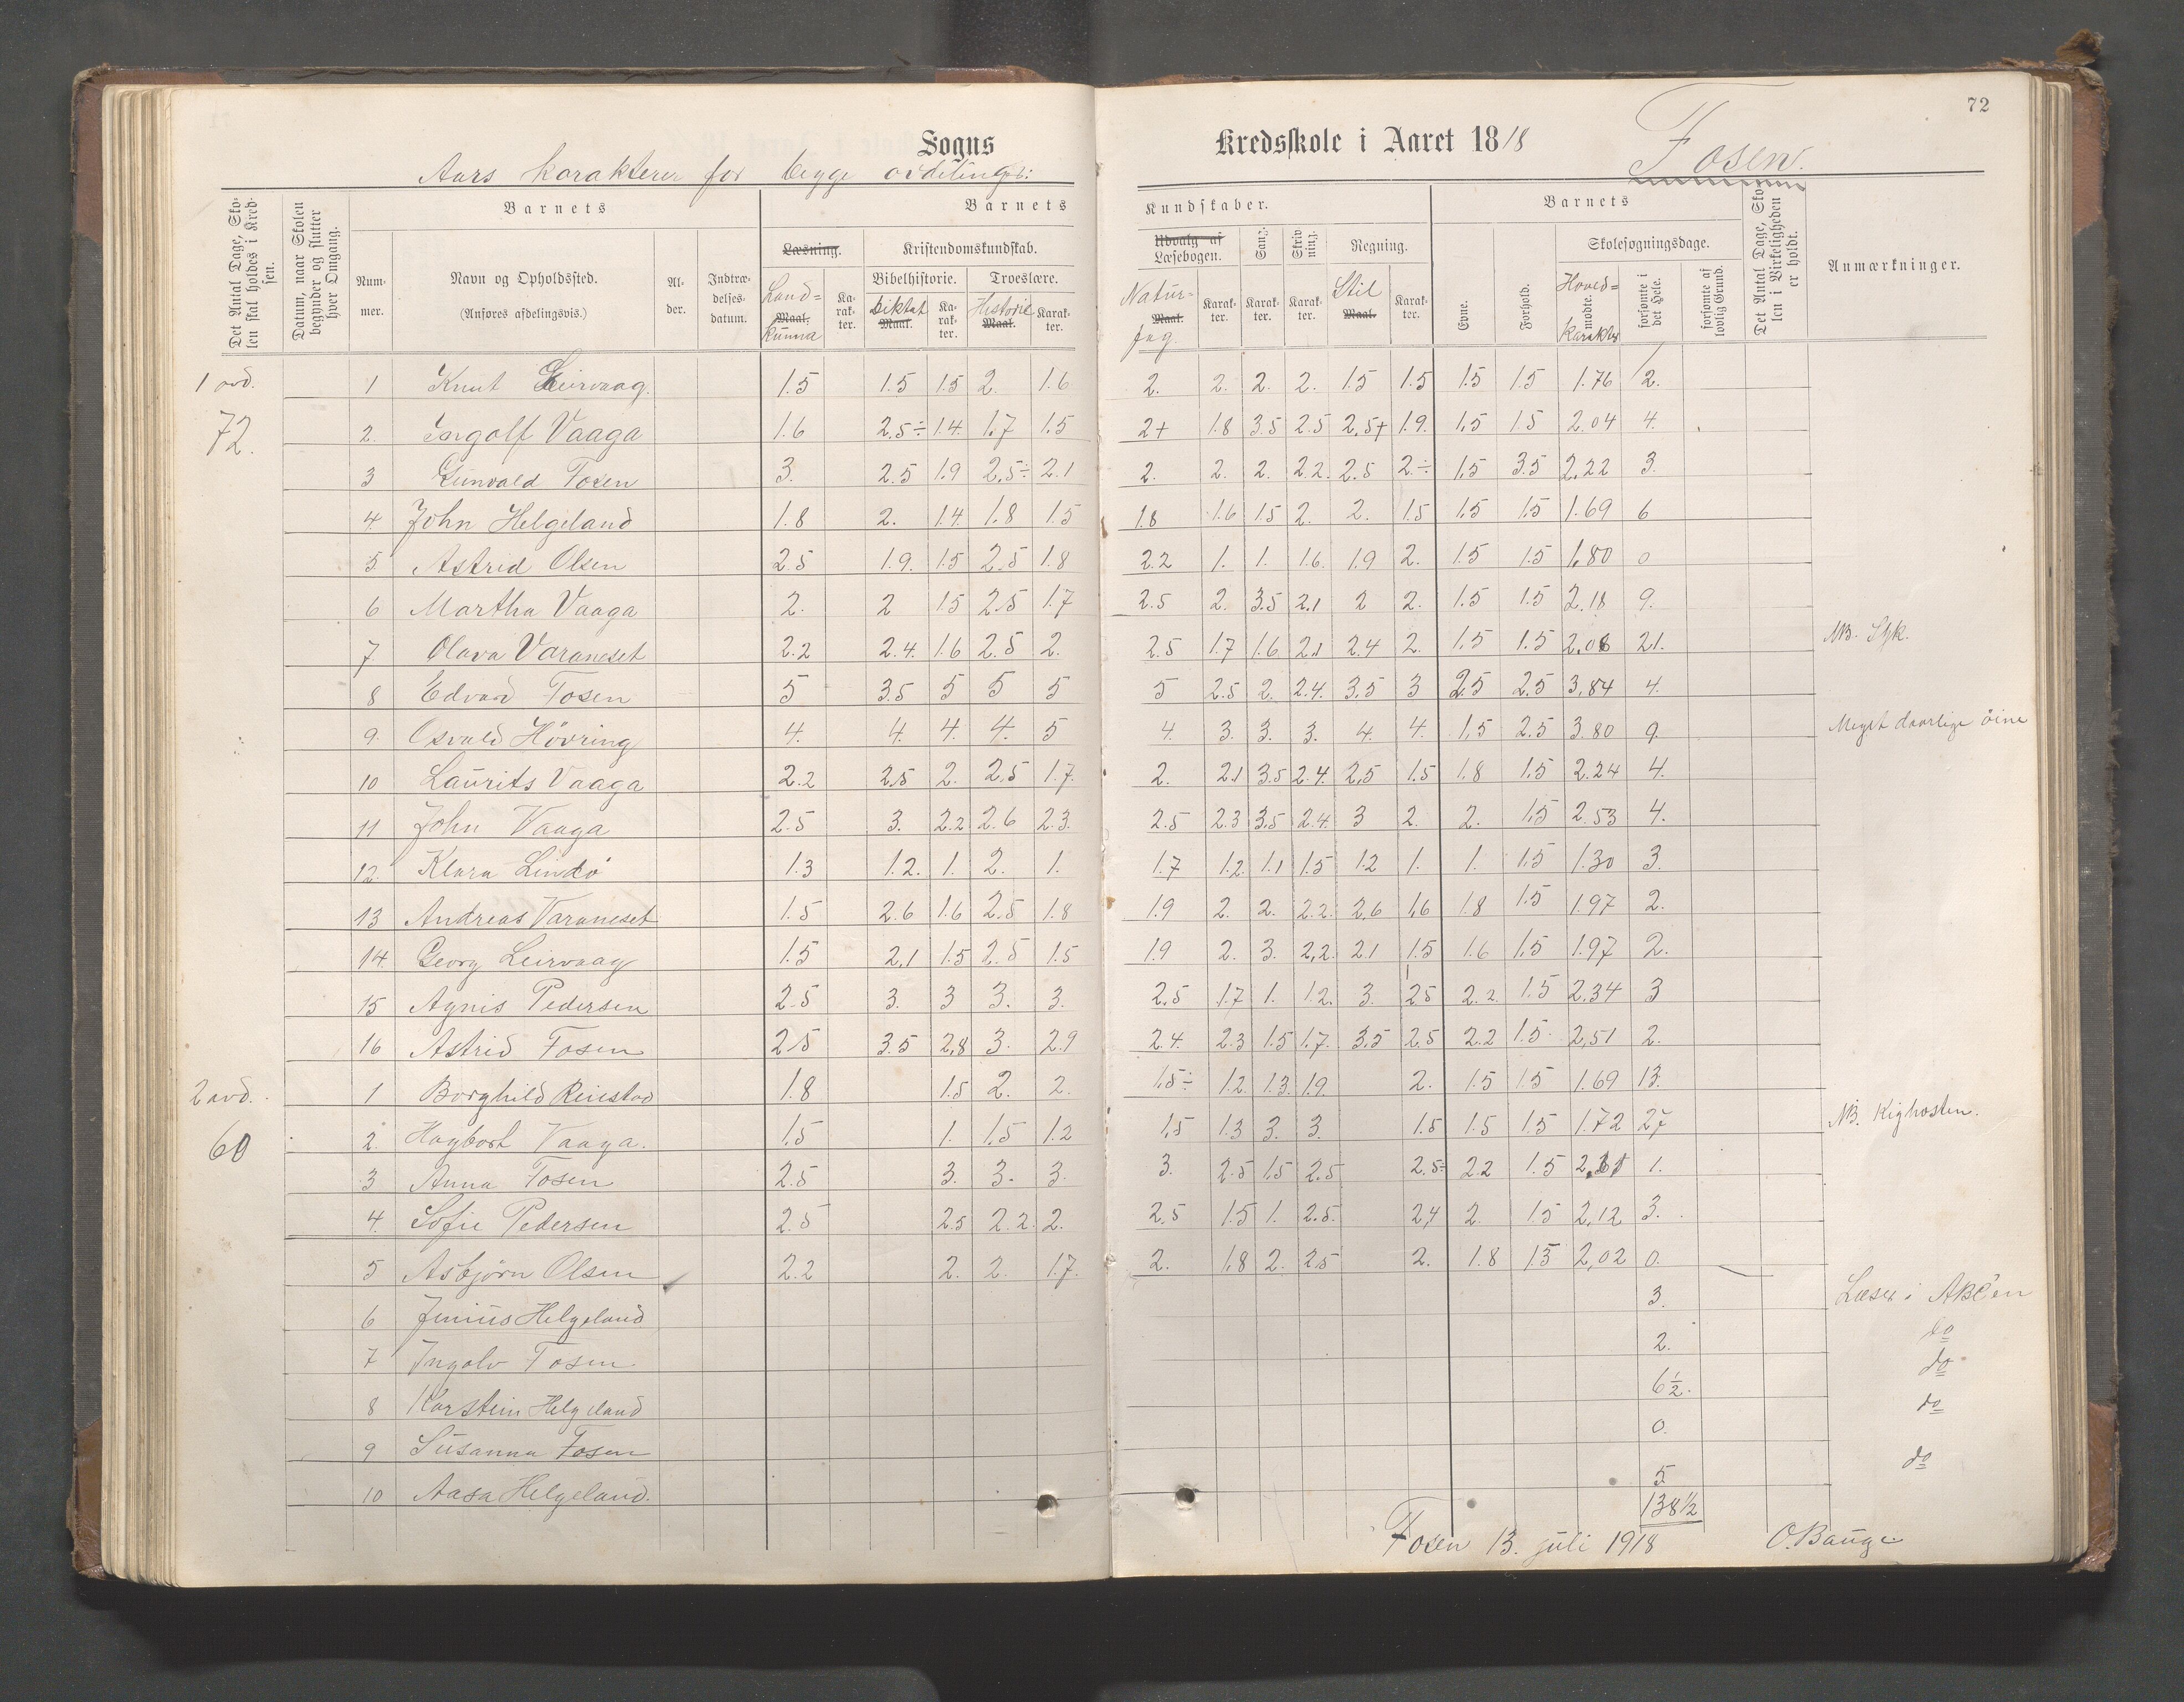 72
Sogns Kredsskole i Aaret 1818
Fosen.
Aars karakterer for begge avdelinger:
Det Antal Dage, Skolen skal holdes i Kredsen.
Datum, naar Skolen begynder og slutter hver Omgang.
Barnets
Nummer.
Navn og Opholdssted.
(Anføres afdelingsvis.)
Alder.
Indtrædelsesdatum.
Barnets Kundskaber.
Læsning.
Land=kunna
Maal.
Karakter.
Kristendomskundskab.
Bibelhistorie.
Diktat
Maal.
Karakter.
Troeslære.
Historie
Maal.
Karakter.
Udvalg af Læsebogen.
Natur-fag
Maal.
Karakter.
Sang.
Karakter.
Skrivning.
Karakter.
Regning.
Stil
Maal.
Karakter.
Barnets
Evne.
Forhold.
Skolesøgningsdage.
Hoved=karakter
mødte.
forsømte i det Hele.
forsømte af lovlig Grund.
Det Antal Dage, Skolen i Virkeligheden er holdt.
Anmærkninger.
1 avd. 1 Knut Leirvaag. 1.5 1.5 1.5 2. 1.6 2. 2. 2. 2. 1.5 1.5 1.5 1.5 1.76 2.
72. 2. Ingolf Vaaga 1.6 2.5÷ 1.4. 1.7 1.5 2+ 1.8 3.5 2.5 2.5+ 1.9. 1.5 1.5 2.04 4.
3 Gunvald Fosen 3. 2.5 1.9 2.5÷ 2.1 2. 2. 2. 2.2. 2.5 2.÷ 1.5 3.5 2.22 3.
4. John Helgeland 1.8 2. 1.4. 1.8 1.5 1.8 1.6 1.5 2. 2. 1.5 1.5 1.5 1.69 6
5. Astrid Olsen 2.5 1.9. 1.5 2.5 1.8 2.2 1. 1. 1.6. 1.9 2. 1.5 1.5 1.80 0
6 Martha Vaaga 2. 2 1.5 2.5 1.7 2.5 2. 3.5 2.1 2 2. 1.5 1.5 2.18 9.
7 Olava Varaneset 2.2 2.4. 1.6 2.5 2. 2.5 1.7 1.6 2.1 2.4 2. 1.5 1.5 2.08 21. NB. Syk.
8 Edvard Fosen 5 3.5 5 5 5 5 2.5 2. 2.4. 3.5 3 2.5 2.5 3.84 4.
9. Osvald Hövring 4. 4. 4. 4. 5 4. 3. 3. 3. 4. 4. 1.5 2.5 3.80 9. Meget daarlige öine
10 Laurits Vaaga 2.2 2.5 2. 2.5 1.7. 2. 2.1 3.5 2.4. 2.5 1.5 1.8 1.5 2.24 4.
11 John Vaaga 2.5 3. 2.2 2.6 2.3. 2.5 2.3 3.5 2.4. 3 2. 2. 1.5 2.53 4.
12. Klara Lindö 1.3 1.2. 1. 2. 1. 1.7 1.2. 1.1 1.5 1.2 1. 1. 1.5 1.30 3.
13 Andreas Varaneset 1.5 2.6 1.6 2.5 1.8 1.9 2. 2. 2.2. 2.6 1.6 1.8 1.5 1.97 2.
14. Georg Leirvaag 1.5 2.1 1.5 2.5 1.5 1.9 2. 3. 2.2. 2.1 1.5 1.6 1.5 1.97 2.
15 Agnis Pedersen 2.5 3. 3 3. 3. 2.5 1.7 1. 1.2. 3. 2.5 2.2. 1.5 2.34 3
16 Astrid Fosen 2.5 3.5 2.8 3. 2.9 2.4. 2.3 1.5 1.7. 3.5 2.5 2.2 1.5. 2.51 2.
2 avd. 1 Borghild Reiestad 1.8 1.5 2. 2. 1.5÷ 1.2. 1.3. 1.9. 2. 1.5 1.5 1.69 13.
60 2. Hagbart Vaaga. 1.5 1. 1.5 1.2 1.5 1.3 3. 3. 1.5 1.5 1.5 1.72 27 NB. Kighosten.
3 Anna Fosen 2.5 3. 3. 3. 3. 2.5 1.5 2.5 2.5÷ 2.2 1.5 1.
4. Sofie Pedersen 2.5 2.5 2.2. 2. 2.5 1.5 1. 2.5. 2.4 2. 1.5 2.12 3.
5 Asbjørn Olsen 2.2 2. 2. 1.7. 2. 1.8 2. 2.5 2. 1.8 1.5 2.02 0.
6 Junius Helgeland 3. Læser i ABC'en
7 Ingolv Fosen 2. do
8 Karstein Helgeland 6½. do
9 Susanna Fosen 0. do
10 Aasa Helgeland. 5. do
138½
Fosen 13. juli 1918 O. Bauge